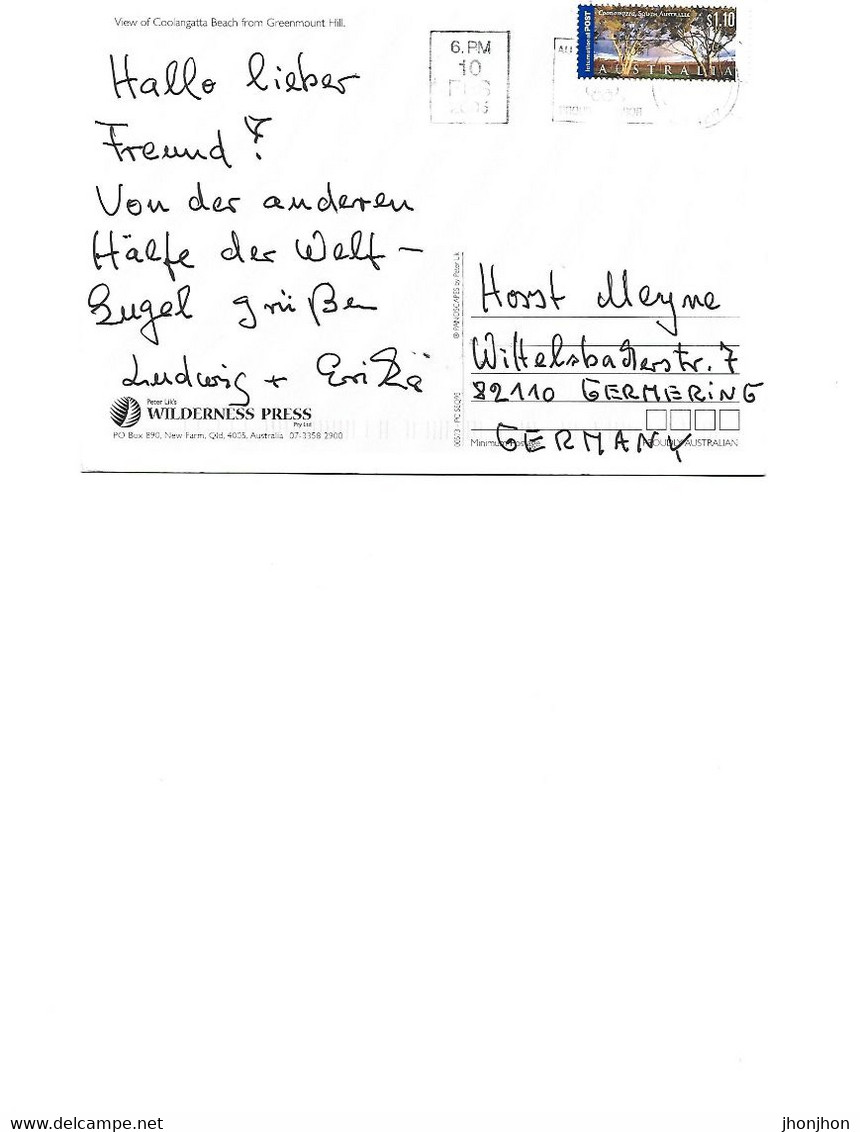 View of Coolangatta Beach from Greenmount Hill.
6. PM
10
InternationalPOST
Coonawarra, South Australia
$1.10
AUSTRALIA
Hallo lieber
Freund!
Von der anderen
Hälfe der Welt –
Kugel grüßen
Ludwig + Erika
Peter Lik's
WILDERNESS PRESS
Pty Ltd
PO Box 890, New Farm, Qld, 4005, Australia 07-3358 2900
® PANOSCAPES by Peter Lik
Horst Meyne
Wittelsbacherstr. 7
82110 GERMERING
GERMANY
Minimum Postage
PROUDLY AUSTRALIAN
jhonjhon